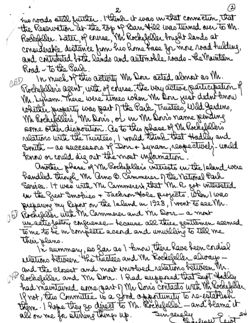 2
his roads still further. I think it was in that connection, that
the Reservation at the top of Barr Hill was turned over to Mr.
Rockefeller. Later, of course, Mr. Rockefeller bought lands at
considerable distance from his home base for more road building,
and contributed both lands and automobile roads - the Mountain
Road - to the Park.
Much of this activity Mr. Dorr acted almost as Mr.
Rockefeller's agent with, of course, the very active participation of
Mr. Lynam. There were times when Mr. Dorr didn't know
whether property was part of the Park, Trustees, Wild Gardens,
Mr. Rockefeller's, Mr. Dorr's, or in Mr. Dorr's name pending
some other disposition. As to this phase of Mr. Rockefeller's
relations with the Trustees, I would think that Hadley and
Smith, - as successors of Dorr & Lynam, respectively - could
know or could dig out the most information.
Another phase of Mr. Rockefeller's interests in the Island were
handled through Mr. Arno B. Cammerer of the National Park
Service. It was with Mr. Cammerer that Mr. R. got interested
in the Great Smokies - Jackson Hole projects. When I was
preparing my report on the Island in 1928, I went to see Mr.
Rockefeller with Mr. Cammerer and Mr. Dorr - a most
unsatisfactory conference - because all three gentlemen seemed
to me to be in complete accord and unwilling to tell me
their plans.
In summary, so far as I know there have been cordial
relations between the Trustees and Mr. Rockefeller always -
and the closest and most involved relations between Mr.
Rockefeller and Mr. Dorr. I had supposed that Supt. Hadley
had maintained some part of Mr. Dorr's contacts with Mr. Rockefeller.
If not, this Committee is a good opportunity to re-establish
them. I hope they go direct to Mr. Rockefeller - and blame it
all on me for stirring things up.
Sincerely